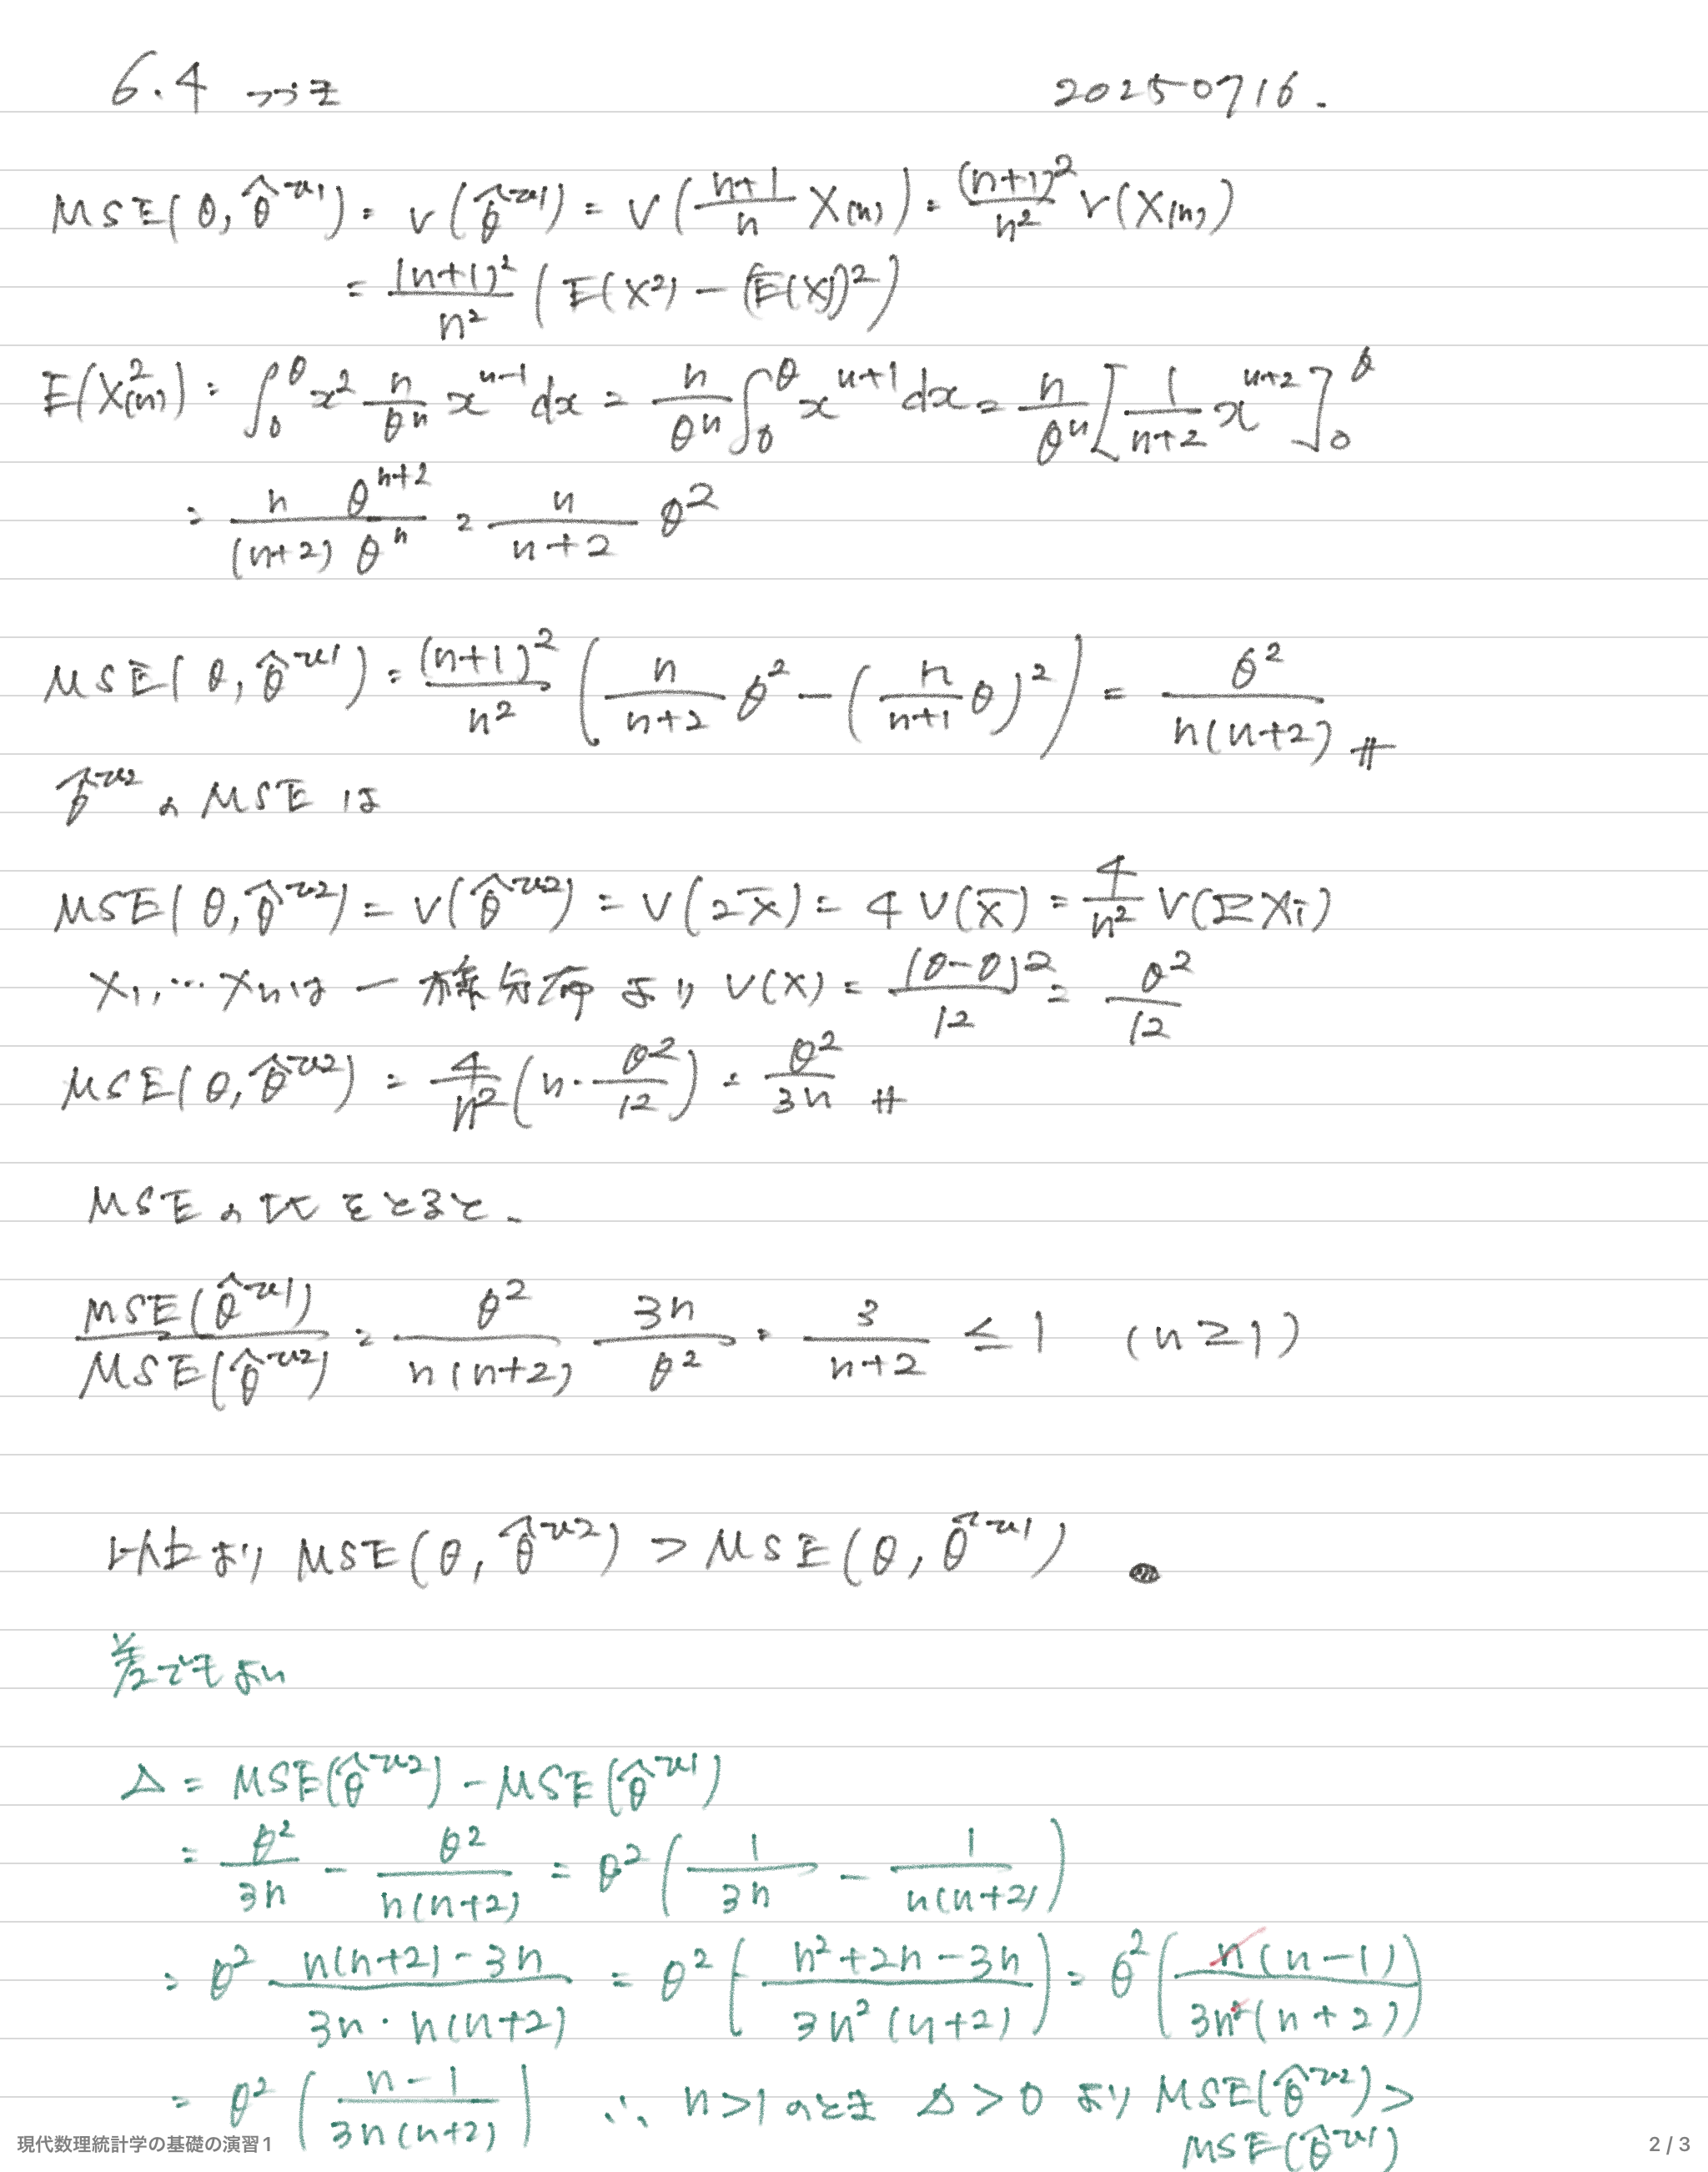 6.4 つづき 20250716.
MSE(θ, θ̂^{U1}) = V(θ̂^{U1}) = V(\frac{n+1}{n} X_{(n)}) = \frac{(n+1)^2}{n^2} V(X_{(n)})
= \frac{(n+1)^2}{n^2} (E(X^2) - (E(X))^2)
E(X_{(n)}^2) = ∫_0^θ x^2 \frac{n}{θ^n} x^{n-1} dx = \frac{n}{θ^n} ∫_0^θ x^{n+1} dx = \frac{n}{θ^n} [\frac{1}{n+2} x^{n+2}]_0^θ
= \frac{n θ^{n+2}}{(n+2) θ^n} = \frac{n}{n+2} θ^2
MSE(θ, θ̂^{U1}) = \frac{(n+1)^2}{n^2} (\frac{n}{n+2} θ^2 - (\frac{n}{n+1} θ)^2) = \frac{θ^2}{n(n+2)} #
θ̂^{U2} の MSE は
MSE(θ, θ̂^{U2}) = V(θ̂^{U2}) = V(2X̄) = 4V(X̄) = \frac{4}{n^2} V(ΣXi)
X1, … Xn は 一様分布 より V(X) = \frac{(θ-0)^2}{12} = \frac{θ^2}{12}
MSE(θ, θ̂^{U2}) = \frac{4}{n^2} (n・\frac{θ^2}{12}) = \frac{θ^2}{3n} #
MSE の 比 をとると、
\frac{MSE(θ̂^{U1})}{MSE(θ̂^{U2})} = \frac{θ^2}{n(n+2)} \frac{3n}{θ^2} = \frac{3}{n+2} ≤ 1 (n ≥ 1)
以上より MSE(θ, θ̂^{U2}) > MSE(θ, θ̂^{U1})
差でもよい
Δ = MSE(θ̂^{U2}) - MSE(θ̂^{U1})
= \frac{θ^2}{3n} - \frac{θ^2}{n(n+2)} = θ^2 (\frac{1}{3n} - \frac{1}{n(n+2)})
= θ^2 \frac{n(n+2) - 3n}{3n・n(n+2)} = θ^2 (\frac{n^2+2n-3n}{3n^2(n+2)}) = θ^2 (\frac{n(n-1)}{3n^2(n+2)})
= θ^2 (\frac{n-1}{3n(n+2)}) ∴ n>1 のとき Δ > 0 より MSE(θ̂^{U2}) >
MSE(θ̂^{U1})
現代数理統計学の基礎の演習1 2 / 3